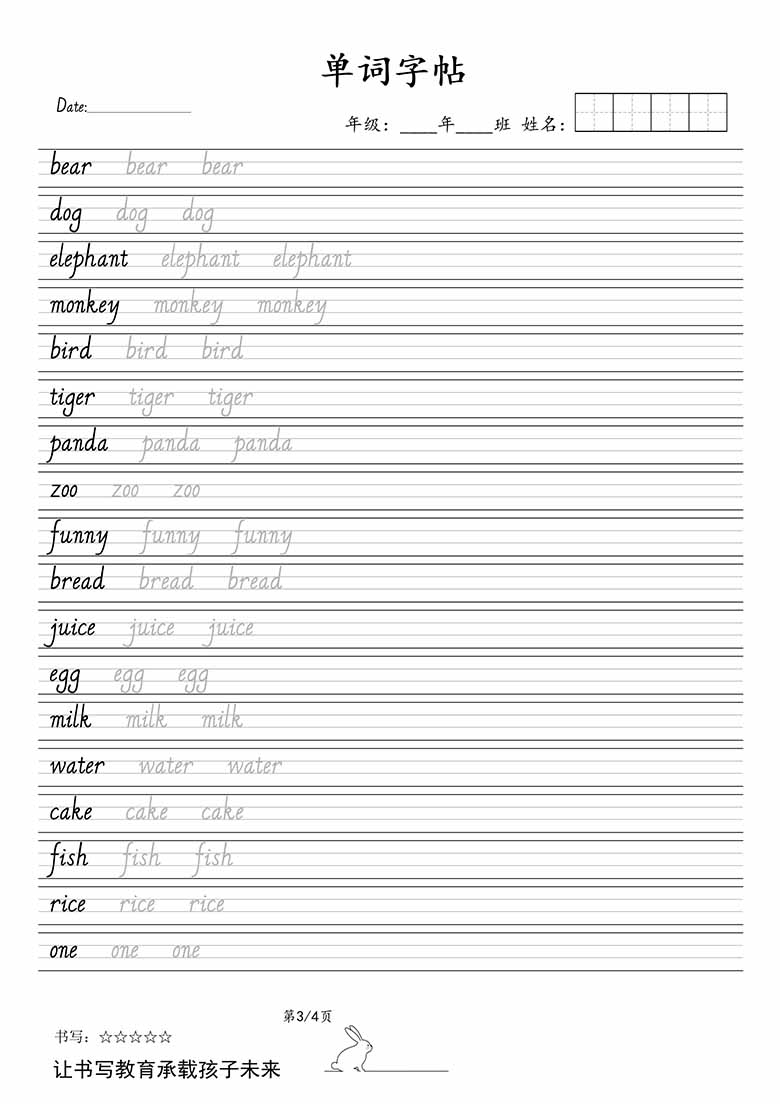 单词字帖
Date:
年级：____年____班 姓名：
bear bear bear
dog dog dog
elephant elephant elephant
monkey monkey monkey
bird bird bird
tiger tiger tiger
panda panda panda
zoo zoo zoo
funny funny funny
bread bread bread
juice juice juice
egg egg egg
milk milk milk
water water water
cake cake cake
fish fish fish
rice rice rice
one one one
第3/4页
书写：☆☆☆☆☆
让书写教育承载孩子未来